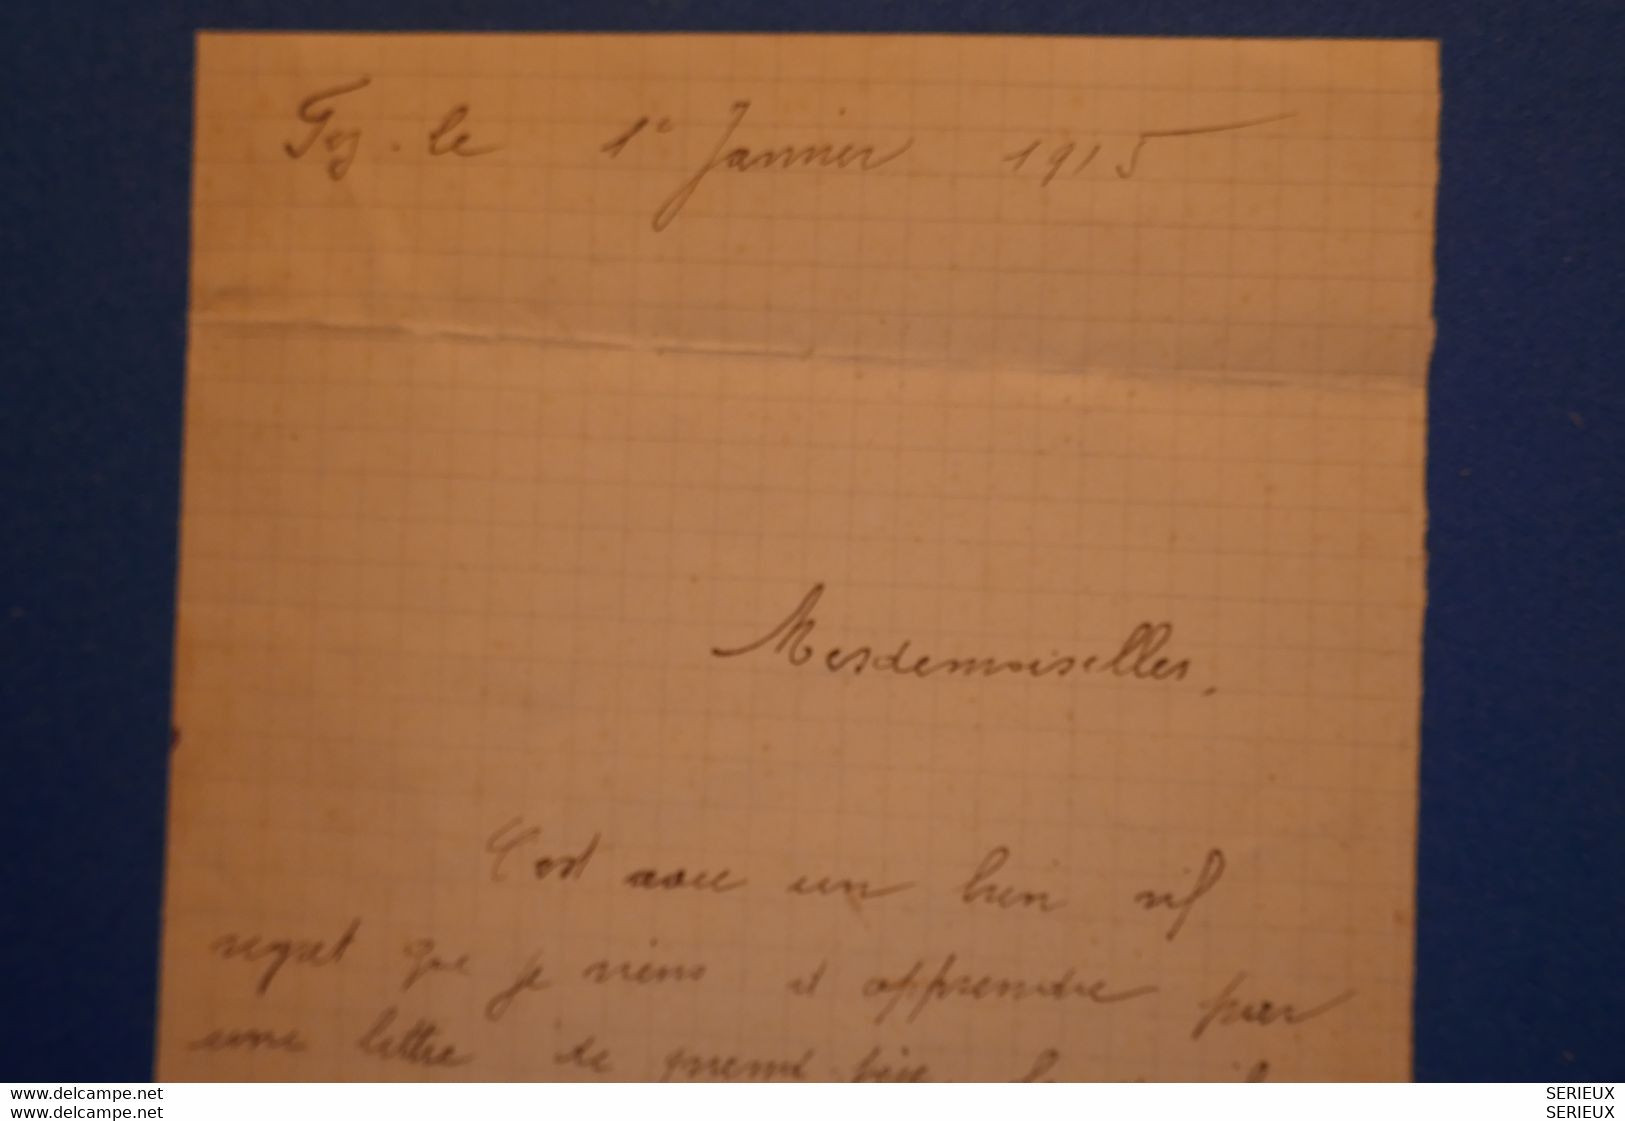 Fez. le 1e Janvier 1915
Mesdemoiselles,
C'est avec un bien vif
regret que je viens d'apprendre par
une lettre de
www.delcampe.net
www.delcampe.net
SERIEUX
SERIEUX